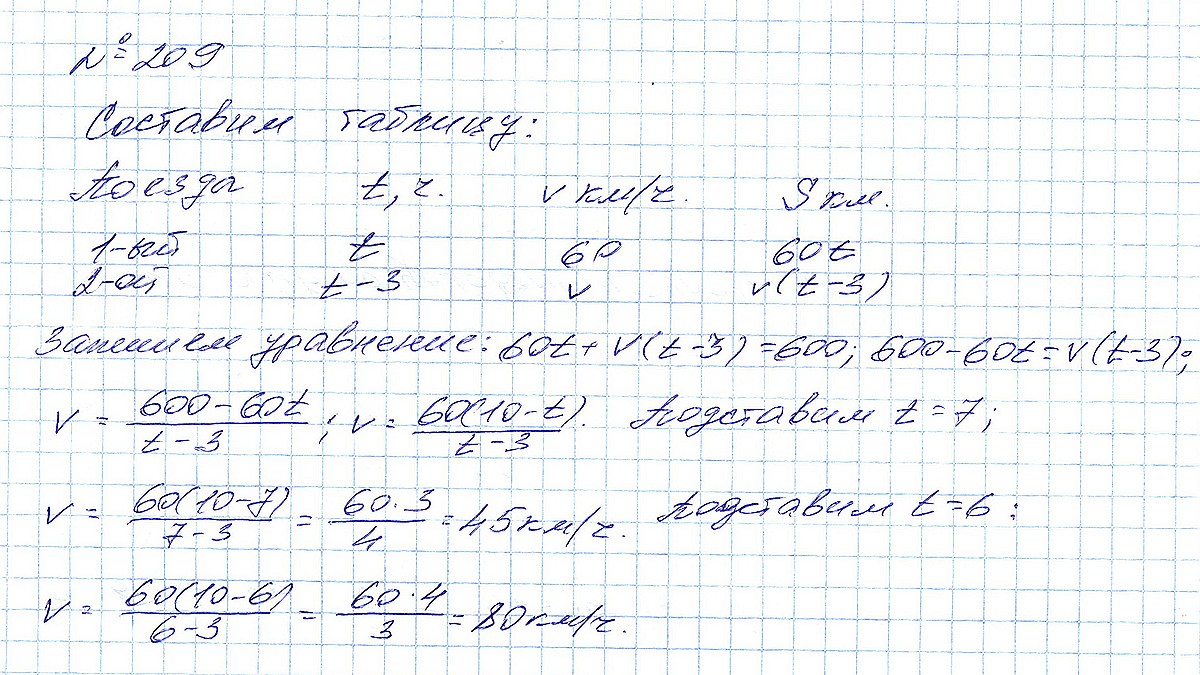 № 209
Составим таблицу:
Поезда t, ч. v км/ч. S км.
1-ый t 60 60t
2-ой t-3 v v(t-3)
Запишем уравнение: 60t + v(t-3) = 600; 600-60t = v(t-3);
v = (600-60t)/(t-3); v = 60(10-t)/(t-3). Подставим t = 7;
v = 60(10-7)/(7-3) = 60·3/4 = 45 км/ч. Подставим t = 6:
v = 60(10-6)/(6-3) = 60·4/3 = 80 км/ч.